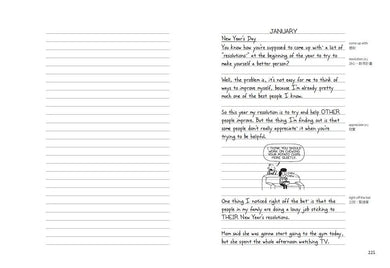 JANUARY
New Year's Day
You know how you're supposed to come up with a list of
"resolutions" at the beginning of the year to try to
make yourself a better person?
Well, the problem is, it's not easy for me to think of
ways to improve myself, because I'm already pretty
much one of the best people I know.
So this year my resolution is to try and help OTHER
people improve. But the thing I'm finding out is that
some people don't really appreciate it when you're
trying to be helpful.
I THINK YOU SHOULD
WORK ON CHEWING
YOUR POTATO CHIPS
MORE QUIETLY.
One thing I noticed right off the bat is that the
people in my family are doing a lousy job sticking to
THEIR New Year's resolutions.
Mom said she was gonna start going to the gym today,
but she spent the whole afternoon watching TV.
come up with
resolution
appreciate
right off the bat
225